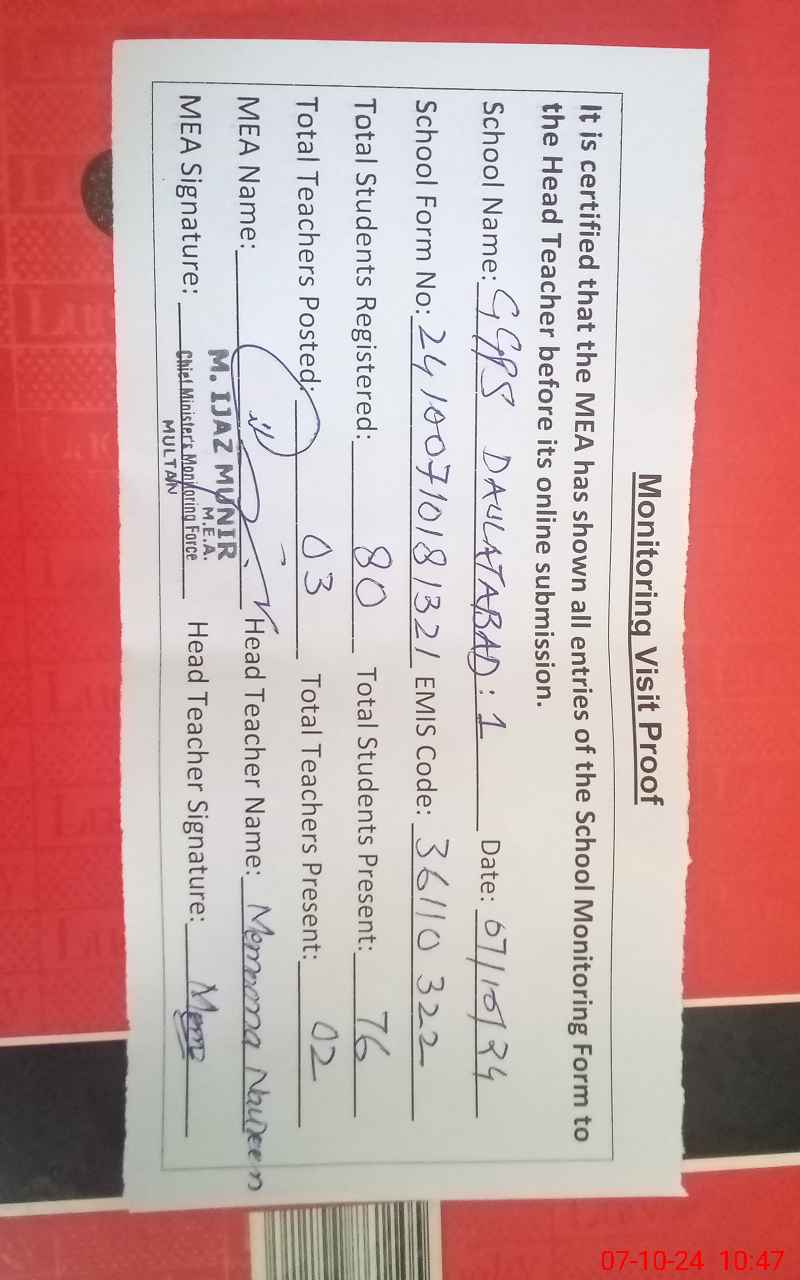 Monitoring Visit Proof
It is certified that the MEA has shown all entries of the School Monitoring Form to
the Head Teacher before its online submission.
School Name: GGPS DAULATABAD : 1 Date: 07/10/24
School Form No: 24100710181321 EMIS Code: 36110322
Total Students Registered: 80 Total Students Present: 76
Total Teachers Posted: 03 Total Teachers Present: 02
MEA Name: Head Teacher Name: Memoona Naureen
M. IJAZ MUNIR
M.E.A.
MEA Signature: Chief Minister's Monitoring Force Head Teacher Signature:
MULTAN
07-10-24 10:47